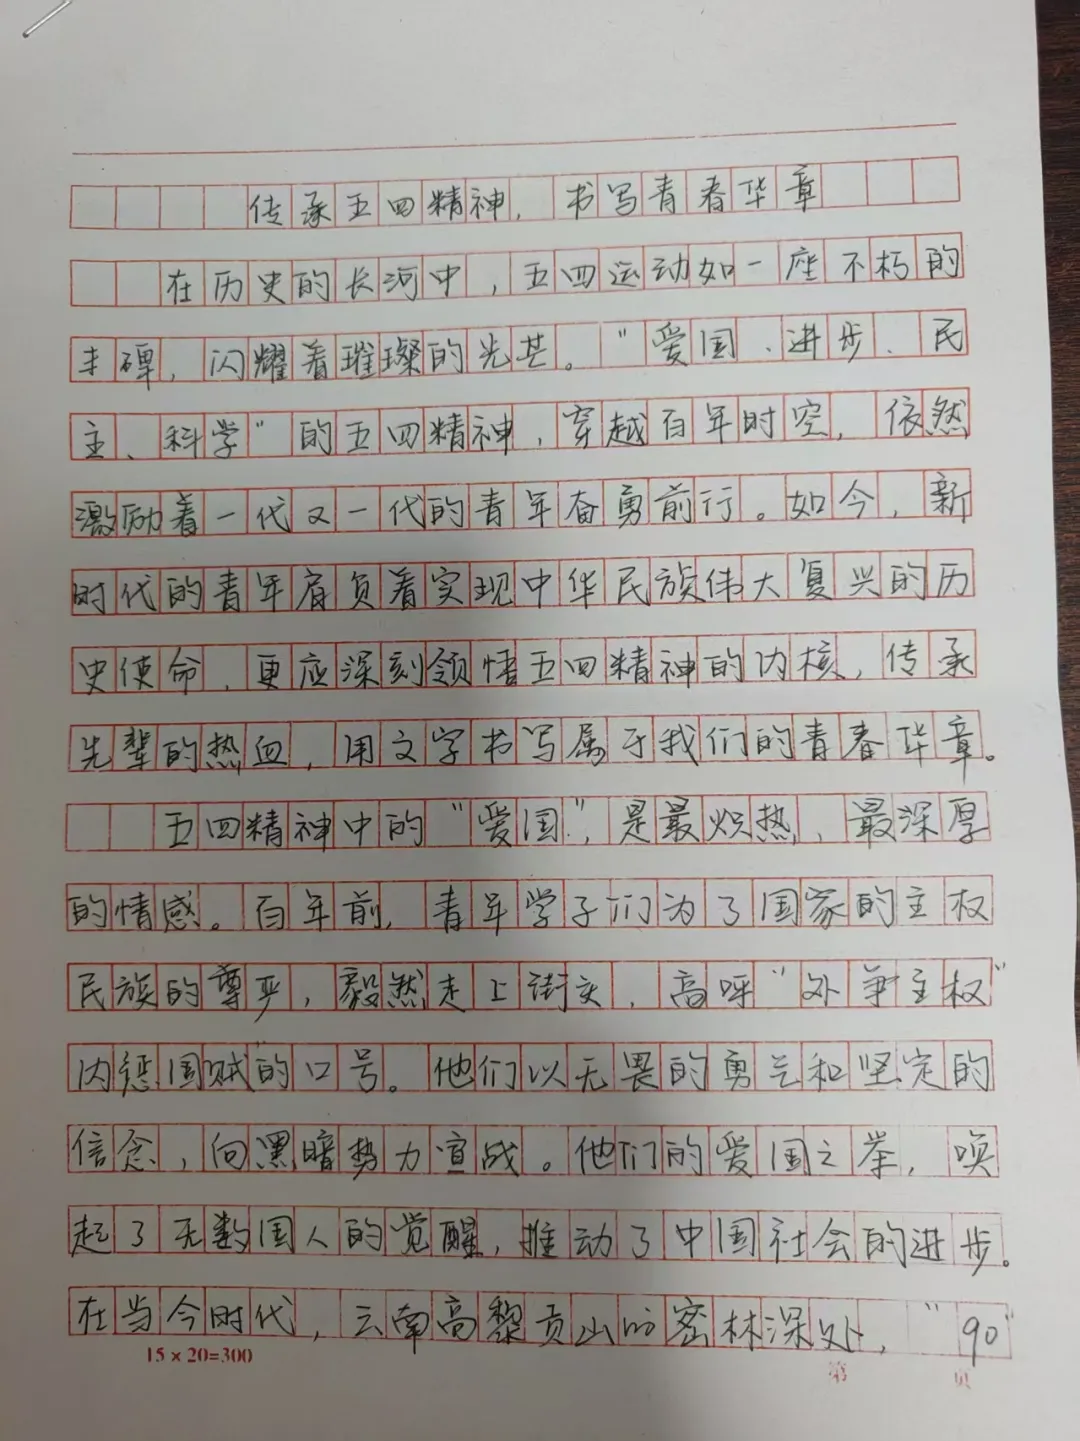 传承五四精神，书写青春华章
在历史的长河中，五四运动如一座不朽的
丰碑，闪耀着璀璨的光芒。“爱国、进步、民
主、科学”的五四精神，穿越百年时空，依然
激励着一代又一代的青年奋勇前行。如今，新
时代的青年肩负着实现中华民族伟大复兴的历
史使命，更应深刻领悟五四精神的内核，传承
先辈的热血，用文字书写属于我们的青春华章。
五四精神中的“爱国”，是最炽热、最深厚
的情感。百年前，青年学子们为了国家的主权
民族的尊严，毅然走上街头，高呼“外争主权”
内惩国贼”的口号。他们以无畏的勇气和坚定的
信念，向黑暗势力宣战。他们的爱国之举，唤
起了无数国人的觉醒，推动了中国社会的进步。
在当今时代，云南高黎贡山的密林深处，“90”
15×20=300
第 页